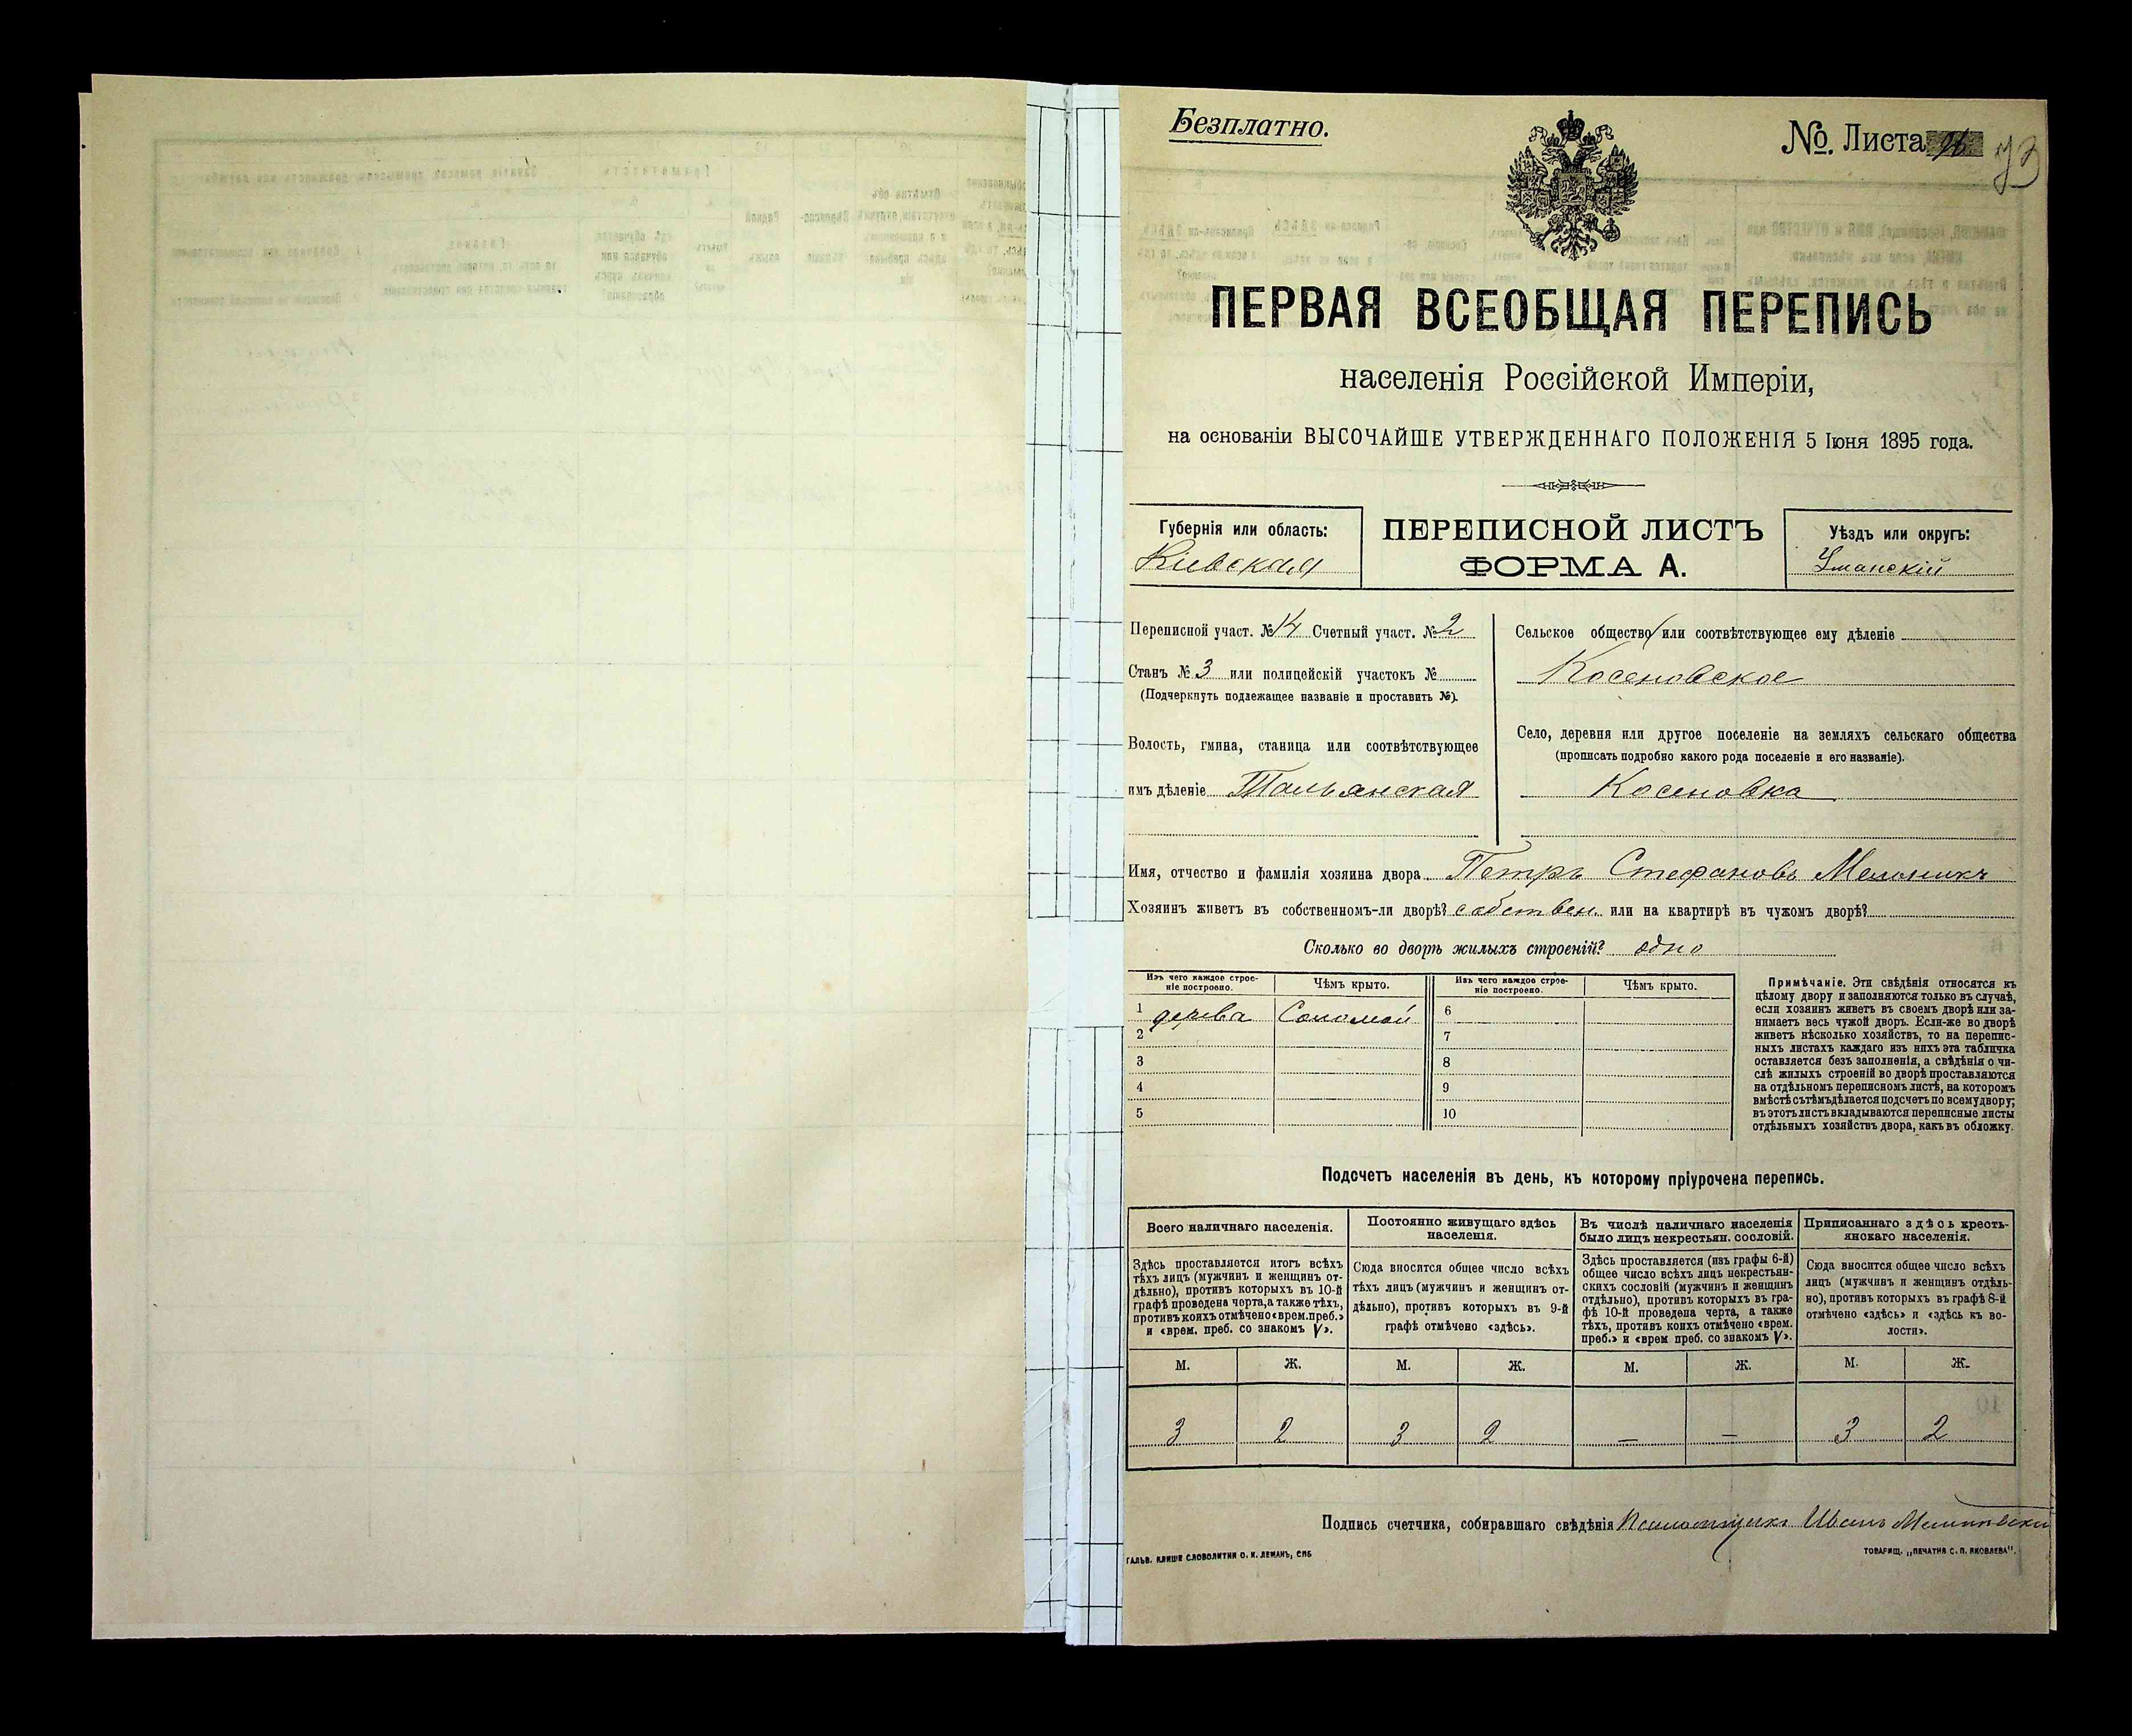 Безплатно.
№. Листа 96
93
ПЕРВАЯ ВСЕОБЩАЯ ПЕРЕПИСЬ
населенія Россійской Имперіи,
на основаніи ВЫСОЧАЙШЕ УТВЕРЖДЕННАГО ПОЛОЖЕНІЯ 5 Іюня 1895 года.
Губернія или область:
Кіевская
ПЕРЕПИСНОЙ ЛИСТЪ
ФОРМА А.
Уѣздъ или округъ:
Уманскій
Переписной участ. № 14 Счетный участ. № 2
Станъ № 3 или полицейскій участокъ №
(Подчеркнуть подлежащее названіе и проставить №).
Волость, гмина, станица или соотвѣтствующее
имъ дѣленіе Тальянская
Сельское общество или соотвѣтствующее ему дѣленіе
Косеновское
Село, деревня или другое поселеніе на земляхъ сельскаго общества
(прописать подробно какого рода поселеніе и его названіе).
Косеновка
Имя, отчество и фамилія хозяина двора Петръ Стефановъ Мельникъ
Хозяинъ живетъ въ собственномъ-ли дворѣ? собствен. или на квартирѣ въ чужомъ дворѣ?
Сколько во дворѣ жилыхъ строеній? одно
Изъ чего каждое строе-
ніе построено.
Чѣмъ крыто.
Изъ чего каждое строе-
ніе построено.
Чѣмъ крыто.
1 дерева Соломой 6
2 7
3 8
4 9
5 10
Примѣчаніе. Эти свѣдѣнія относятся къ
цѣлому двору и заполняются только въ случаѣ,
если хозяинъ живетъ въ своемъ дворѣ или за-
нимаетъ весь чужой дворъ. Если-же во дворѣ
живетъ нѣсколько хозяйствъ, то на перепис-
ныхъ листахъ каждаго изъ нихъ эта табличка
оставляется безъ заполненія, а свѣдѣнія о чи-
слѣ жилыхъ строеній во дворѣ проставляются
на отдѣльномъ переписномъ листѣ, на которомъ
вмѣстѣ съ тѣмъ дѣлается подсчетъ по всему двору;
въ этотъ листъ вкладываются переписные листы
отдѣльныхъ хозяйствъ двора, какъ въ обложку.
Подсчетъ населенія въ день, къ которому пріурочена перепись.
Всего наличнаго населенія.
Здѣсь проставляется итогъ всѣхъ
тѣхъ лицъ (мужчинъ и женщинъ от-
дѣльно), противъ которыхъ въ 10-й
графѣ проведена черта, а также тѣхъ,
противъ коихъ отмѣчено «врем. преб.»
и «врем. преб. со знакомъ V».
Постоянно живущаго здѣсь
населенія.
Сюда вносится общее число всѣхъ
тѣхъ лицъ (мужчинъ и женщинъ от-
дѣльно), противъ которыхъ въ 9-й
графѣ отмѣчено «здѣсь».
Въ числѣ наличнаго населенія
было лицъ некрестьян. сословій.
Здѣсь проставляется (изъ графы 6-й)
общее число всѣхъ лицъ некрестьян-
скихъ сословій (мужчинъ и женщинъ
отдѣльно), противъ которыхъ въ гра-
фѣ 10-й проведена черта, а также
тѣхъ, противъ коихъ отмѣчено «врем.
преб.» и «врем преб. со знакомъ V».
Приписаннаго здѣсь кресть-
янскаго населенія.
Сюда вносится общее число всѣхъ
лицъ (мужчинъ и женщинъ отдѣль-
но), противъ которыхъ въ графѣ 8-й
отмѣчено «здѣсь» и «здѣсь въ во-
лости».
М. Ж. М. Ж. М. Ж. М. Ж.
3 2 3 2 — — 3 2
Подпись счетчика, собиравшаго свѣдѣнія Иванъ
ГАЛЬВ. КЛИШЕ СЛОВОЛИТНИ О. И. ЛЕМАНЪ, СПБ
ТОВАРИЩ. „ПЕЧАТНЯ С. П. ЯКОВЛЕВА".